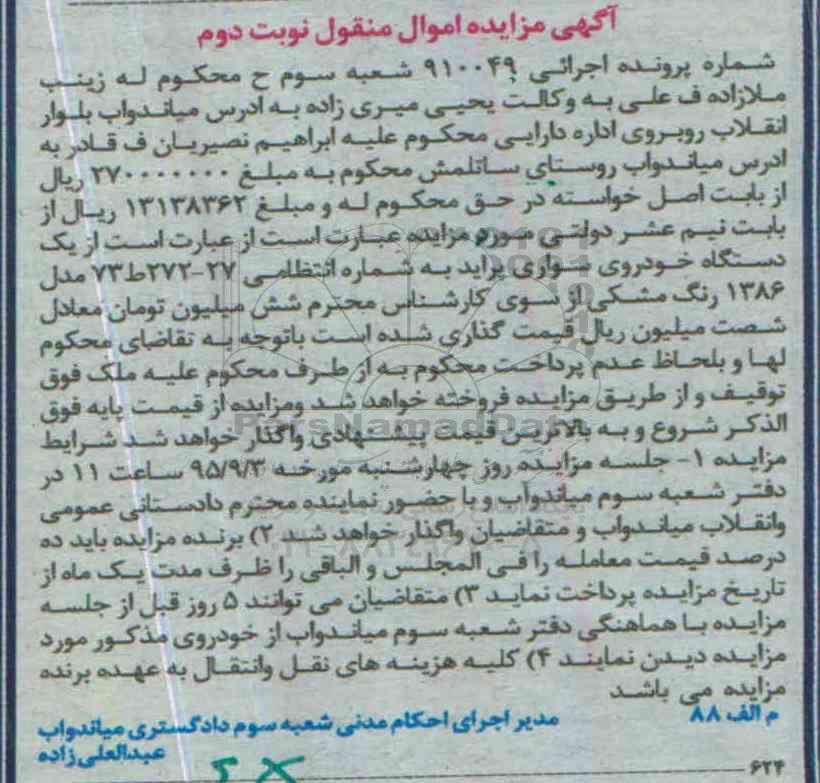 آگهی مزایده اموال منقول نوبت دوم
شماره پرونده اجرائی ۹۱۰۰۴۹ شعبه سوم ح محکوم له زینب
ملازاده ف علی به وکالت یحیی میری زاده به ادرس میاندواب بلوار
انقلاب روبروی اداره دارایی محکوم علیه ابراهیم نصیریان ف قادر به
ادرس میاندواب روستای ساتلمش محکوم به مبلغ ۲۷۰۰۰۰۰۰۰ ریال
از بابت اصل خواسته در حق محکوم له و مبلغ ۱۳۱۳۸۳۶۲ ریال از
بابت نیم عشر دولتی مورد مزایده عبارت است از عبارت است از یک
دستگاه خودروی سواری پراید به شماره انتظامی ۲۷-۲۷۲ط۷۳ مدل
۱۳۸۶ رنگ مشکی از سوی کارشناس محترم شش میلیون تومان معادل
شصت میلیون ریال قیمت گذاری شده است باتوجه به تقاضای محکوم
لها و بلحاظ عدم پرداخت محکوم به از طرف محکوم علیه ملک فوق
توقیف و از طریق مزایده فروخته خواهد شد ومزایده از قیمت پایه فوق
الذکر شروع و به بالاترین قیمت پیشنهادی واگذار خواهد شد شرایط
مزایده ۱- جلسه مزایده روز چهارشنبه مورخه ۹۵/۹/۳ ساعت ۱۱ در
دفتر شعبه سوم میاندواب و با حضور نماینده محترم دادستانی عمومی
وانقلاب میاندواب و متقاضیان واگذار خواهد شد ۲) برنده مزایده باید ده
درصد قیمت معامله را فی المجلس و الباقی را ظرف مدت یک ماه از
تاریخ مزایده پرداخت نماید ۳) متقاضیان می توانند ۵ روز قبل از جلسه
مزایده با هماهنگی دفتر شعبه سوم میاندواب از خودروی مذکور مورد
مزایده دیدن نمایند ۴) کلیه هزینه های نقل وانتقال به عهده برنده
مزایده می باشد
م الف ۸۸
مدیر اجرای احکام مدنی شعبه سوم دادگستری میاندواب
عبدالعلی زاده
۶۲۴
ParsNamadData